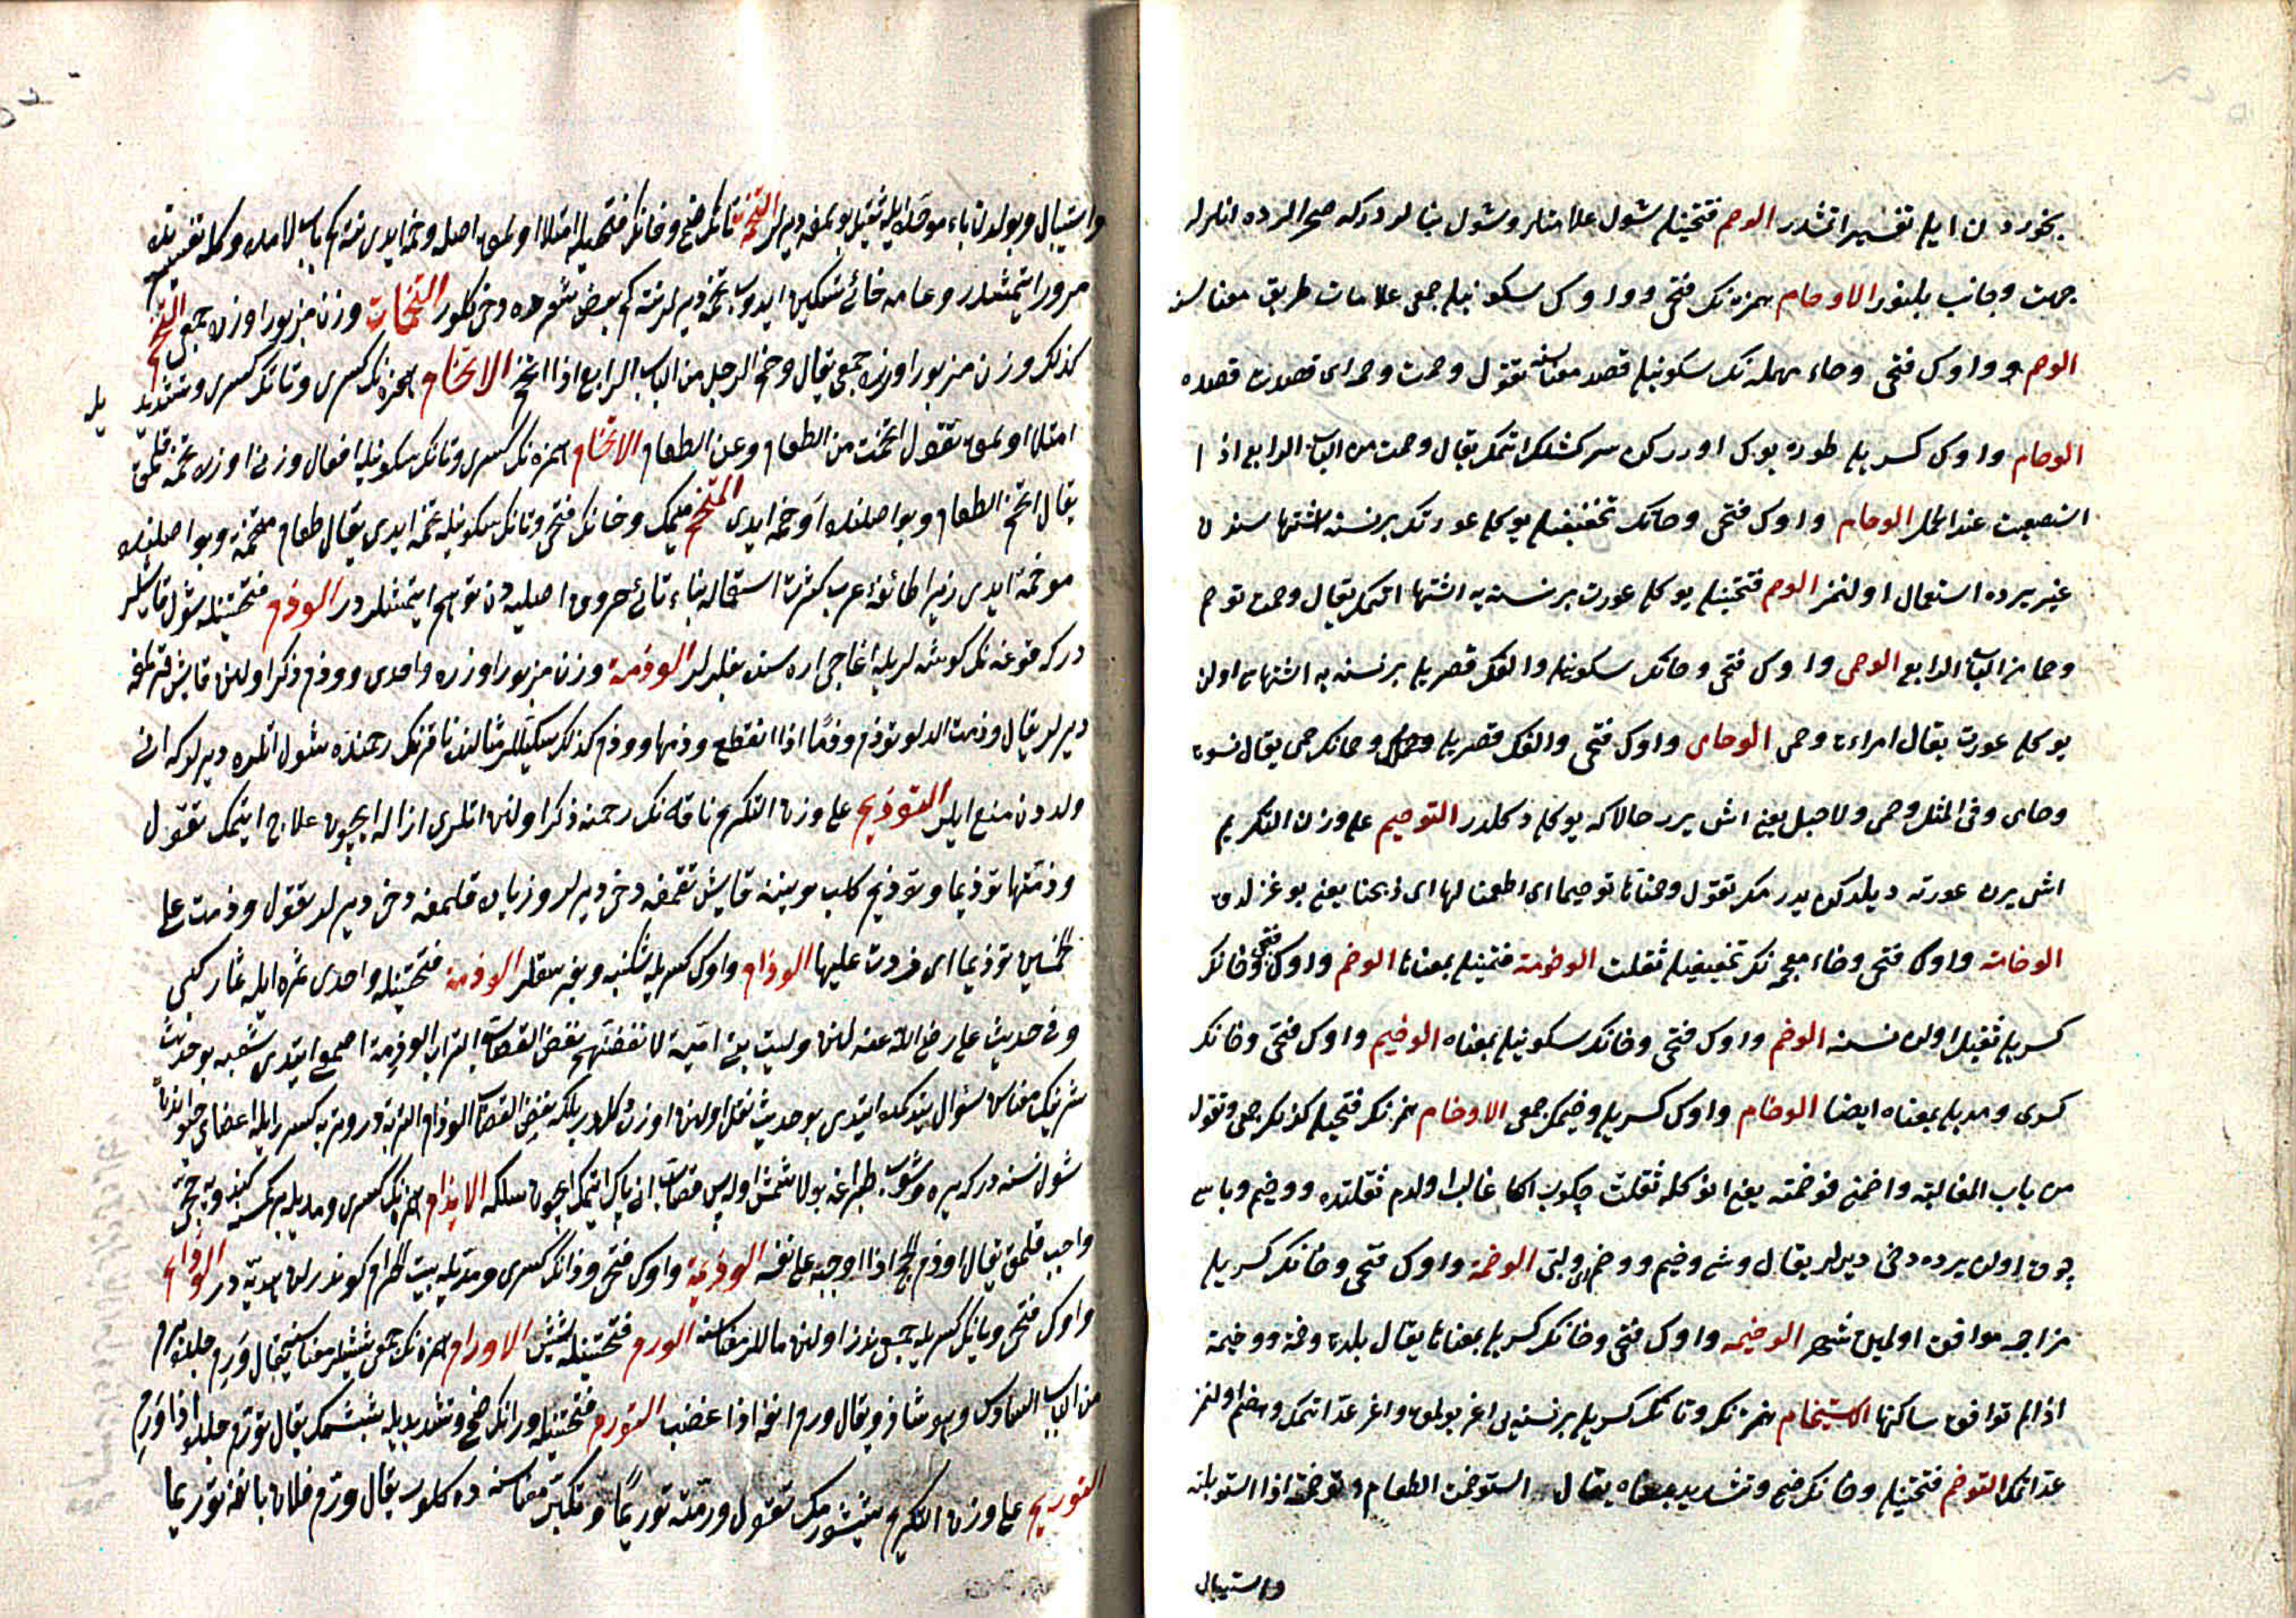 بخوردن ايله تفسير اتمشلدر الوخم فتحتينله شول علامتلر وشول بنالردر كه صحرالرده انلرله
جهت وجانب بلنور الاوخام همزه نك فتحى وواوك سكونيله جمعى علامات طريق معناسنه
الوحم وواوك فتحى وحاء مهمله نك سكونيله قصد معناسنه تقول وحمت وحمه اى قصدت قصده
الوحام واوك كسريله طوره يوك اورركن سركشلك اتمك يقال وحمت من الباب الرابع اذا
استصعبت عند الحمل الوحام واوك فتحى وحانك تخفيفيله يوكلو عورتك برنسنه اشتهاسندن
غيرى يرده استعمال اولنمز الوحم فتحتينله يوكلو عورت برنسنه يه اشتها اتمك يقال وحمت توحم
وحما من الباب الرابع الوحمى واوك فتحى وحانك سكونيله والفك قصريله برنسنه يه اشتهاسى اولن
يوكلو عورت يقال امراءة وحمى الوحامى واوك فتحى والفك قصريله وحمانك جمعى يقال نسوة
وحامى وفى المثل وحمى ولا حبل يعنى اش يرر حالا كه يوكلو دكلدر التوحيم على وزن التكريم
اش يرن عورته ديلدكن يدرمك تقول وحمناها توحيما اى اطعمنا لها اى ذبحنا يعنى بوغزلدق
الوخامة واوك فتحى وخاء معجمه نك تخفيفيله ثقلت الوخومة ضمتينله بمعناها الوخم واوك فتحى وخانك
كسريله ثقيل اولن نسنه الوخم واوك فتحى وخانك سكونيله بمعناه الوخيم واوك فتحى وخانك
كسرى ومديله بمعناه ايضا الوخام واوك كسريله وخيمك جمعى الاوخام همزه نك فتحيله كذلك جمعى وتقول
من باب المغالبة واخمنى فوخمته يعنى انوكله ثقلت چكوب اكا غالب اولدم ثقلتده ووخيم وباسى
چوق اولن يرده دخى ديرلر يقال وشى وخيم ووخم اى وبئ الوخمة واوك فتحى وخانك كسريله
مزاجه موافق اولمين شهر الوخيمه واوك فتحى وخانك كسريله بمعناها يقال بلدة وخمة ووخيمة
اذا لم توافق ساكنها الاستيخام همزه نك وتانك كسريله برنسنه يى اغر بولمق واغر عد اتمك وهضم اولنمز
عد اتمك التوخم فتحتينله وخانك ضمى وتشديديله بمعناه يقال استوخمت الطعام وتوخمته اذا استوبلته
واستيبال
واستيبال وبولدن باء موحده ايله ثقيل بولمغه ديرلر التخمة تانك ضمى وخانك فتحيله امتلا اولمق اصلى وخمه ايدى نته كم باب لامده وكله تفسيرنده
مرور اتمشدر وعامه خائى تسكين ايدوب تخمه ديرلر نته كم بعض شعرده دخى كلور التخمات وزن مزبور اوزره جمعى التخم
كذلك وزن مزبور اوزره جمعى يقال وخم الرجل من الباب الرابع اذا اتخم الاتخام همزه نك كسرى وتانك كسرى وتشديديله
امتلا اولمق تقول اتخمت من الطعام وعن الطعام الاتخام همزه نك كسرى وتانك سكونيله افعال وزنى اوزره تخمه قلمق
يقال اتخمه الطعام وبو اصلنده اوخمه ايدى المتخم ميمك وخانك فتحى وتانك سكونيله تخمه ايدى يقال طعام متخمة وبو اصلنده
موخمة ايدى زيرا طائفه عرب كثرت استعماله بناء تائى حروف اصليه دن توهم ايتمشلدر الوذم فتحتينله شول قايشلر
در كه قوغه نك كوشه لريله اغاجى اره سنه بغلرلر الوذمة وزن مزبور اوزره واحدى ووذم ذكر اولنن قايش قترلمغه
ديرلر يقال وذمت الدلو توذم وذما اذا انقطع وذمها ووذم كذلك سكيللر مثالنده ناقه نك رحمنده شول اتلره ديرلر كه انى
ولددن منع ايلر التوذيم على وزن التكريم ناقه نك رحمنده ذكر اولنن اتلرى ازاله ايچون علاج ايتمك تقول
وذمتها توذيما وتوذيم كلب بوينه قايش تقمغه دخى ديرلر وزياده قلمغه دخى ديرلر تقول وذمت على
الخمسين توذيما اى زدت عليها الوذام واوك كسريله اشكنبه وبغرسقلر الوذمة فتحتينله واحدى ثمره ايله ثمار كبى
وفى حديث على رضى الله عنه لئن وليت بنى امية لانفضنهم نفض القصاب التراب الوذمة اصمعى ايتدى شعبه بو حديث
شريفك معناسن سؤال ايتدكده ايتدى بو حديث نقل اولنن اوزره دكلدر بلكه نفض القصاب الوذام التربة در وتربه كسرايله اعضاى حيواندن
شول نسنه در كه يره دوشوب طپراغه بولاشمش اوله پس قصاب انى پاك ايتمك ايچون سلكه الايذام همزه نك كسرى ومديله بركمسنه كندويه حجى
واجب قلمق يقال اوذم الحج اذا اوجبه على نفسه الوذيمة واوك فتحى وذانك كسرى ومديله بيت الحرامه كوندرلن هديه در الوذائم
واوك فتحى ويانك كسريله جمعى نذر اولنن ماللر معناسنه الورم فتحتينله شيش الاورام همزه نك جمعى شيشلر معناسنه يقال ورم جلده يرم
من الباب السادس وهو شاذ ويقال ورم انفه اذا غضب التورم فتحتينله ورانك ضمى وتشديديله شيشمك يقال تورم جلده اذا ورم
التوريم على وزن التكريم شيشورمك تقول ورمته توريما وتكبر معناسنه ده كلور يقال ورم فلان بانفه توريما